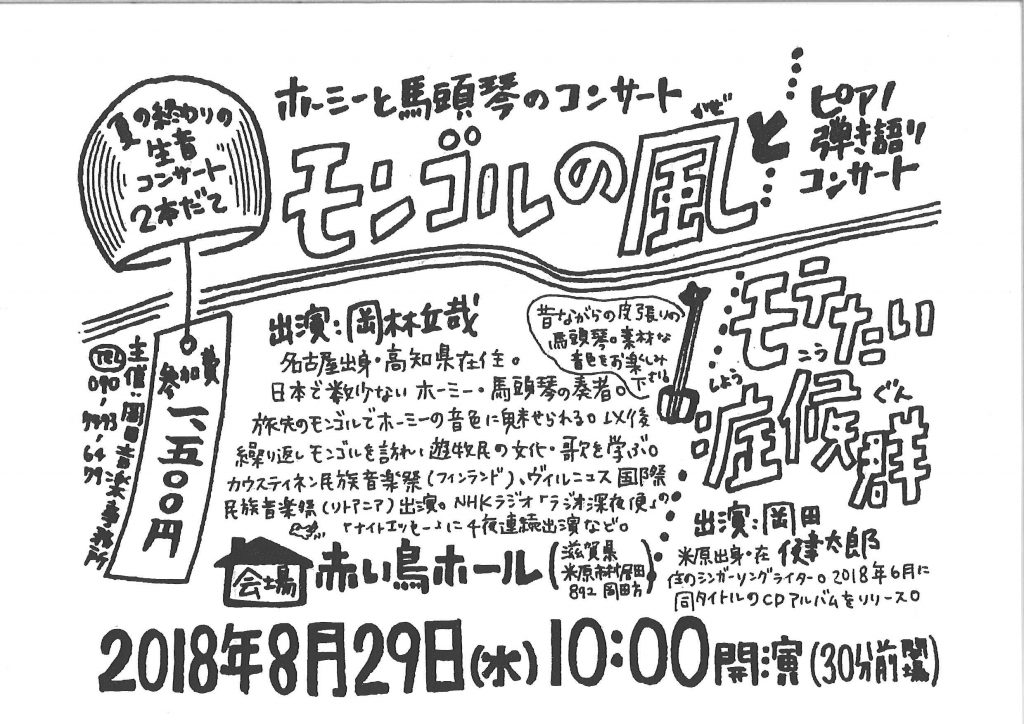 夏の終わりの
生音
コンサート
2本だて
ホーミーと馬頭琴のコンサート
モンゴルの風
かぜ
と
ピアノ
弾き語り
コンサート
モテたい
症候群
しょう
こう
ぐん
出演:岡林立哉
名古屋出身・高知県在住。
日本で数少ないホーミー・馬頭琴の奏者。
旅先のモンゴルでホーミーの音色に魅せられる。以後
繰り返しモンゴルを訪れ、遊牧民の文化・歌を学ぶ。
カウスティネン民族音楽祭(フィンランド)、ヴィルニュス国際
民族音楽祭(リトアニア)出演。NHKラジオ「ラジオ深夜便」の
「ナイトエッセー」に4夜連続出演など。
昔ながらの皮張りの
馬頭琴。素朴な
音色をお楽しみ
下さい
出演:岡田
健太郎
米原出身・在
住のシンガーソングライター。2018年6月に
同タイトルのCDアルバムをリリース。
参加費
一、五〇〇円
主催:岡田音楽事務所
TEL
090-
6479
会場
赤い鳥ホール
滋賀県
892 岡田方
2018年8月29日(水)10:00開演(30分前開場)